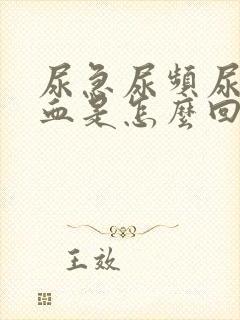 尿急尿頻尿
血是怎麼回
王效